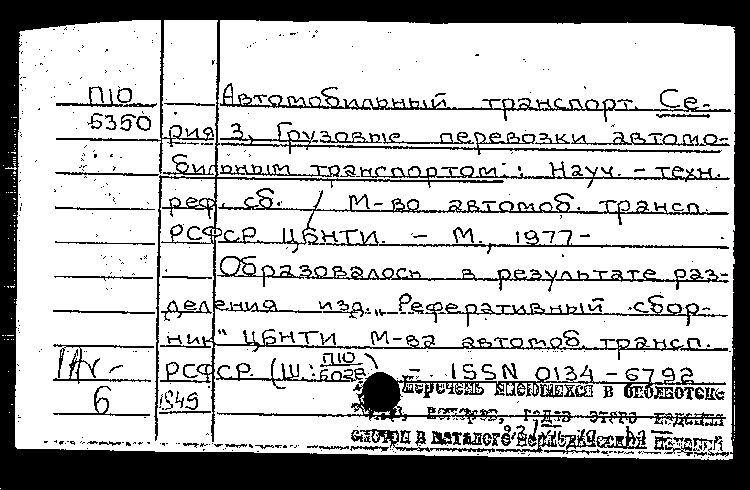 П10 Автомобильный транспорт. Се-
5350 рия 3, Грузовые перевозки автомо-
бильным транспортом : Науч. - техн.
реф. сб. / М-во автомоб. трансп.
РСФСР. ЦБНТИ. - М., 1977-
Образовалось в результате раз-
деления изд. „Реферативный сбор-
ник" ЦБНТИ М-ва автомоб. трансп.
РСФСР (Ш.: П10 ) - ISSN 0134-6792
Перечень имеющихся в библиотеке
6 1949
годов этого издания
смотри в каталоге периодических изданий